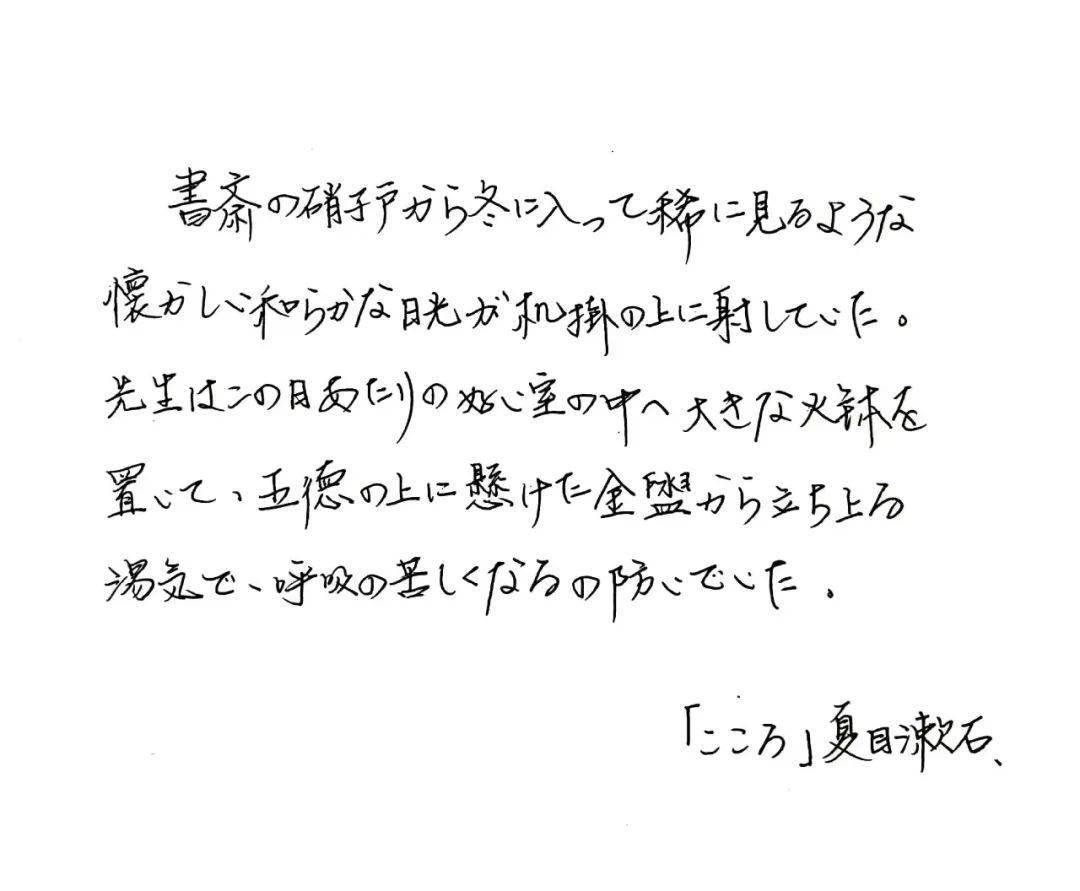 書斎の硝子戸から冬に入って稀に見るような
懐かしい和らかな日光が机掛の上に射していた。
先生はこの日あたりの好い室の中へ大きな火鉢を
置いて、五徳の上に懸けた金盥から立ち上る
湯気で、呼吸の苦しくなるの防いでいた。
「こころ」夏目漱石、